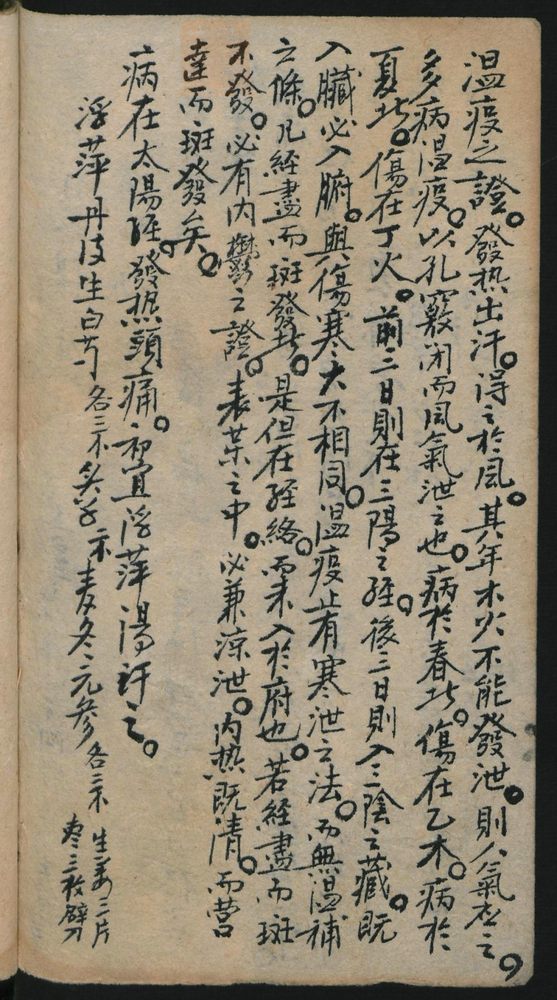 温疫之證。發热出汗。得之於風。其年木火不能發泄。則人氣應之。
多病温疫。以孔竅闭而風氣泄之也。病於春者。傷在乙木。病於
夏者。傷在丁火。前三日則在三陽之經。後三日則入三陰之藏。既
入臟必入腑。與傷寒大不相同。温疫止有寒泄之法。而無温補
之條。凡經盡而斑發者。是但在經絡。而未入於府也。若經盡而斑
不發。必有内鬱之證。表药之中。必兼凉泄。内热既清。而营
達而斑發矣。
病在太陽經。發热頭痛。初宜浮萍湯汗之。
浮萍 丹皮 生白芍 各三 炙草 麦冬 元参 各三 生姜三片
枣三枚劈